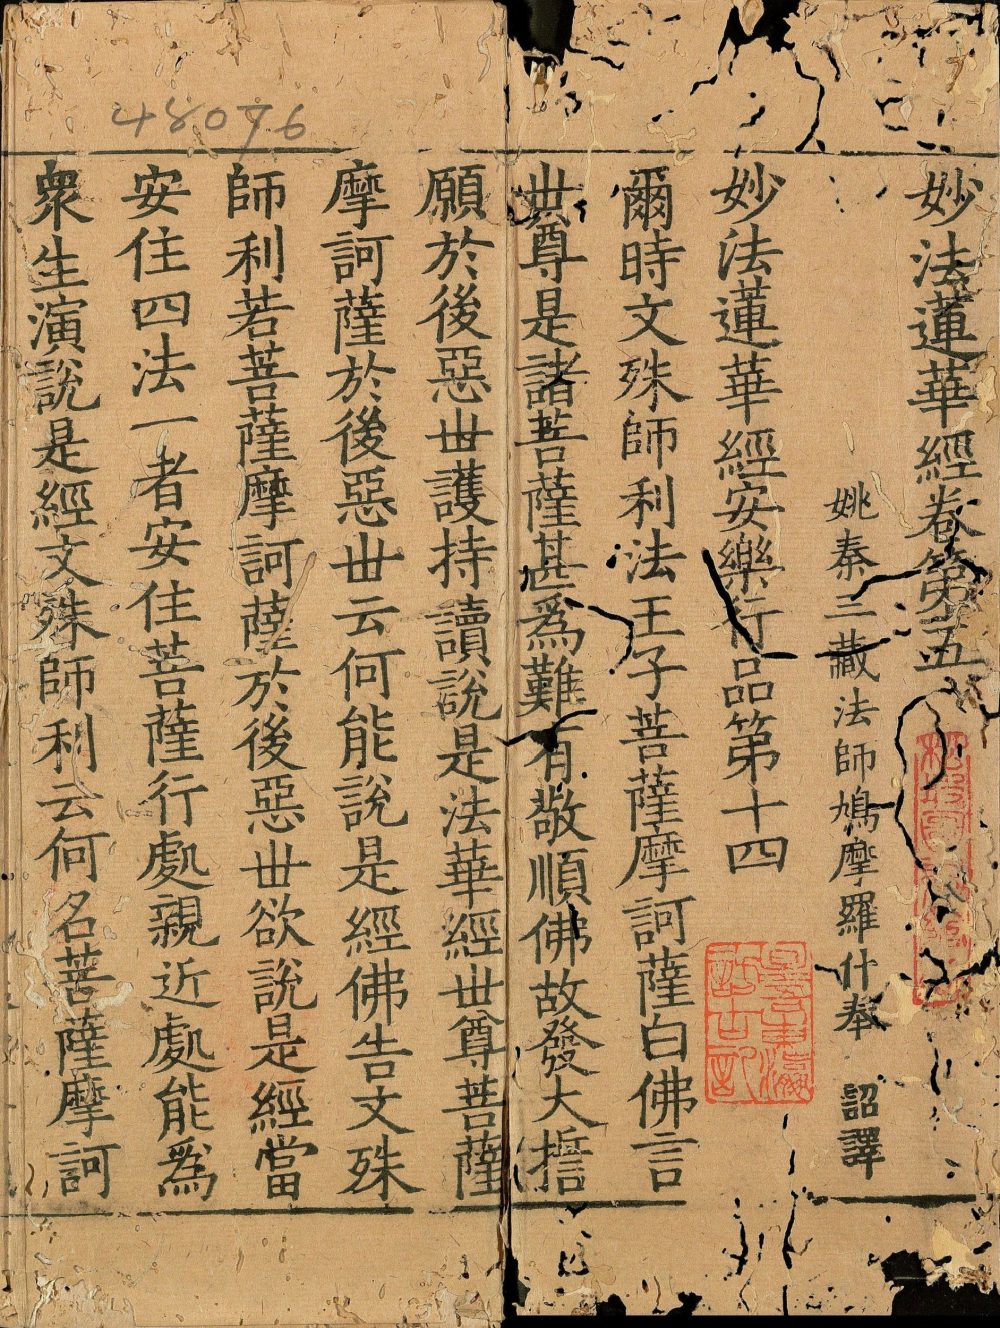 妙法蓮華經卷第五
姚秦三藏法師鳩摩羅什奉　詔譯
妙法蓮華經安樂行品第十四
爾時文殊師利法王子菩薩摩訶薩白佛言
世尊是諸菩薩甚爲難有敬順佛故發大誓
願於後惡世護持讀說是法華經世尊菩薩
摩訶薩於後惡世云何能說是經佛告文殊
師利若菩薩摩訶薩於後惡世欲說是經當
安住四法一者安住菩薩行處親近處能爲
衆生演說是經文殊師利云何名菩薩摩訶
48076